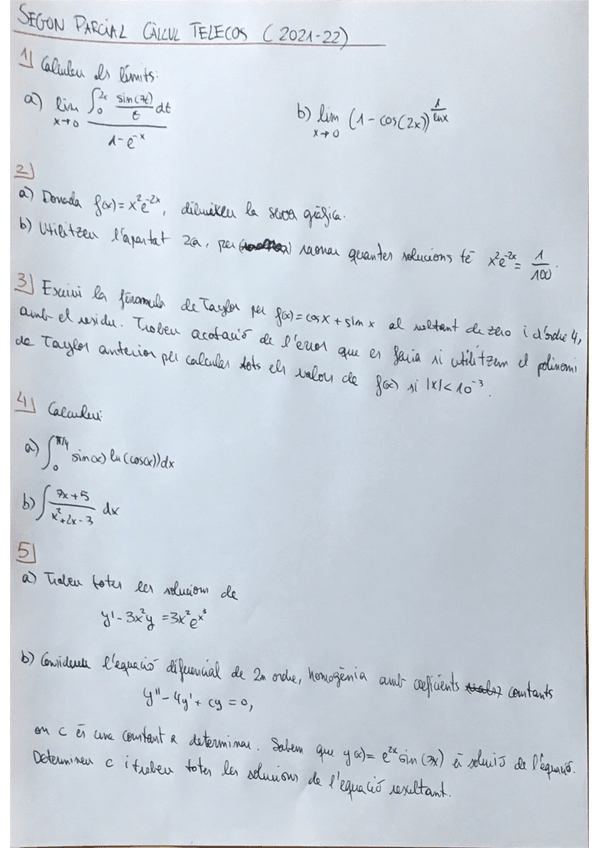 SEGON PARCIAL CÀLCUL TELECOS (2021-22)
1) Calculeu els límits:
a) lim x→0 (∫_0^{2x} sin(7t)/t dt) / (1-e^{-x})
b) lim x→0 (1-cos(2x))^{1/ln x}
2)
a) Donada f(x)=x²e^{-2x}, dibuixeu la seva gràfica.
b) Utilitzeu l'apartat 2a, per raonar quantes solucions té x²e^{-2x} = 1/100.
3) Escriviu la fórmula de Taylor per f(x)=cos x + sin x al voltant de zero i d'ordre 4,
amb el residu. Trobeu acotació de l'error que es faria si utilitzem el polinomi
de Taylor anterior per calcular tots els valors de f(x) si |x|<10^{-3}.
4) Calculeu:
a) ∫_0^{π/4} sin(x) ln(cos(x)) dx
b) ∫ (7x+5)/(x²+2x-3) dx
5)
a) Trobeu totes les solucions de
y' - 3x²y = 3x²e^{x³}
b) Considereu l'equació diferencial de 2n ordre, homogènia amb coeficients constants
y'' - 4y' + cy = 0,
on c és una constant a determinar. Sabem que y(x)= e^{2x} sin(7x) és solució de l'equació.
Determineu c i trobeu totes les solucions de l'equació resultant.